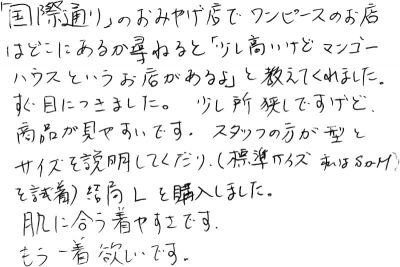 「国際通り」のおみやげ店でワンピースのお店
はどこにあるか尋ねると「少し高いけどマンゴー
ハウスというお店があるよ」と教えてくれました。
すぐ目につきました。 少し所狭しですけど、
商品が見やすいです。 スタッフの方が型と
サイズを説明してくださり、(標準サイズ 私はSかM)
を試着) 結局 L を購入しました。
肌に合う着やすさです。
もう一着欲しいです。